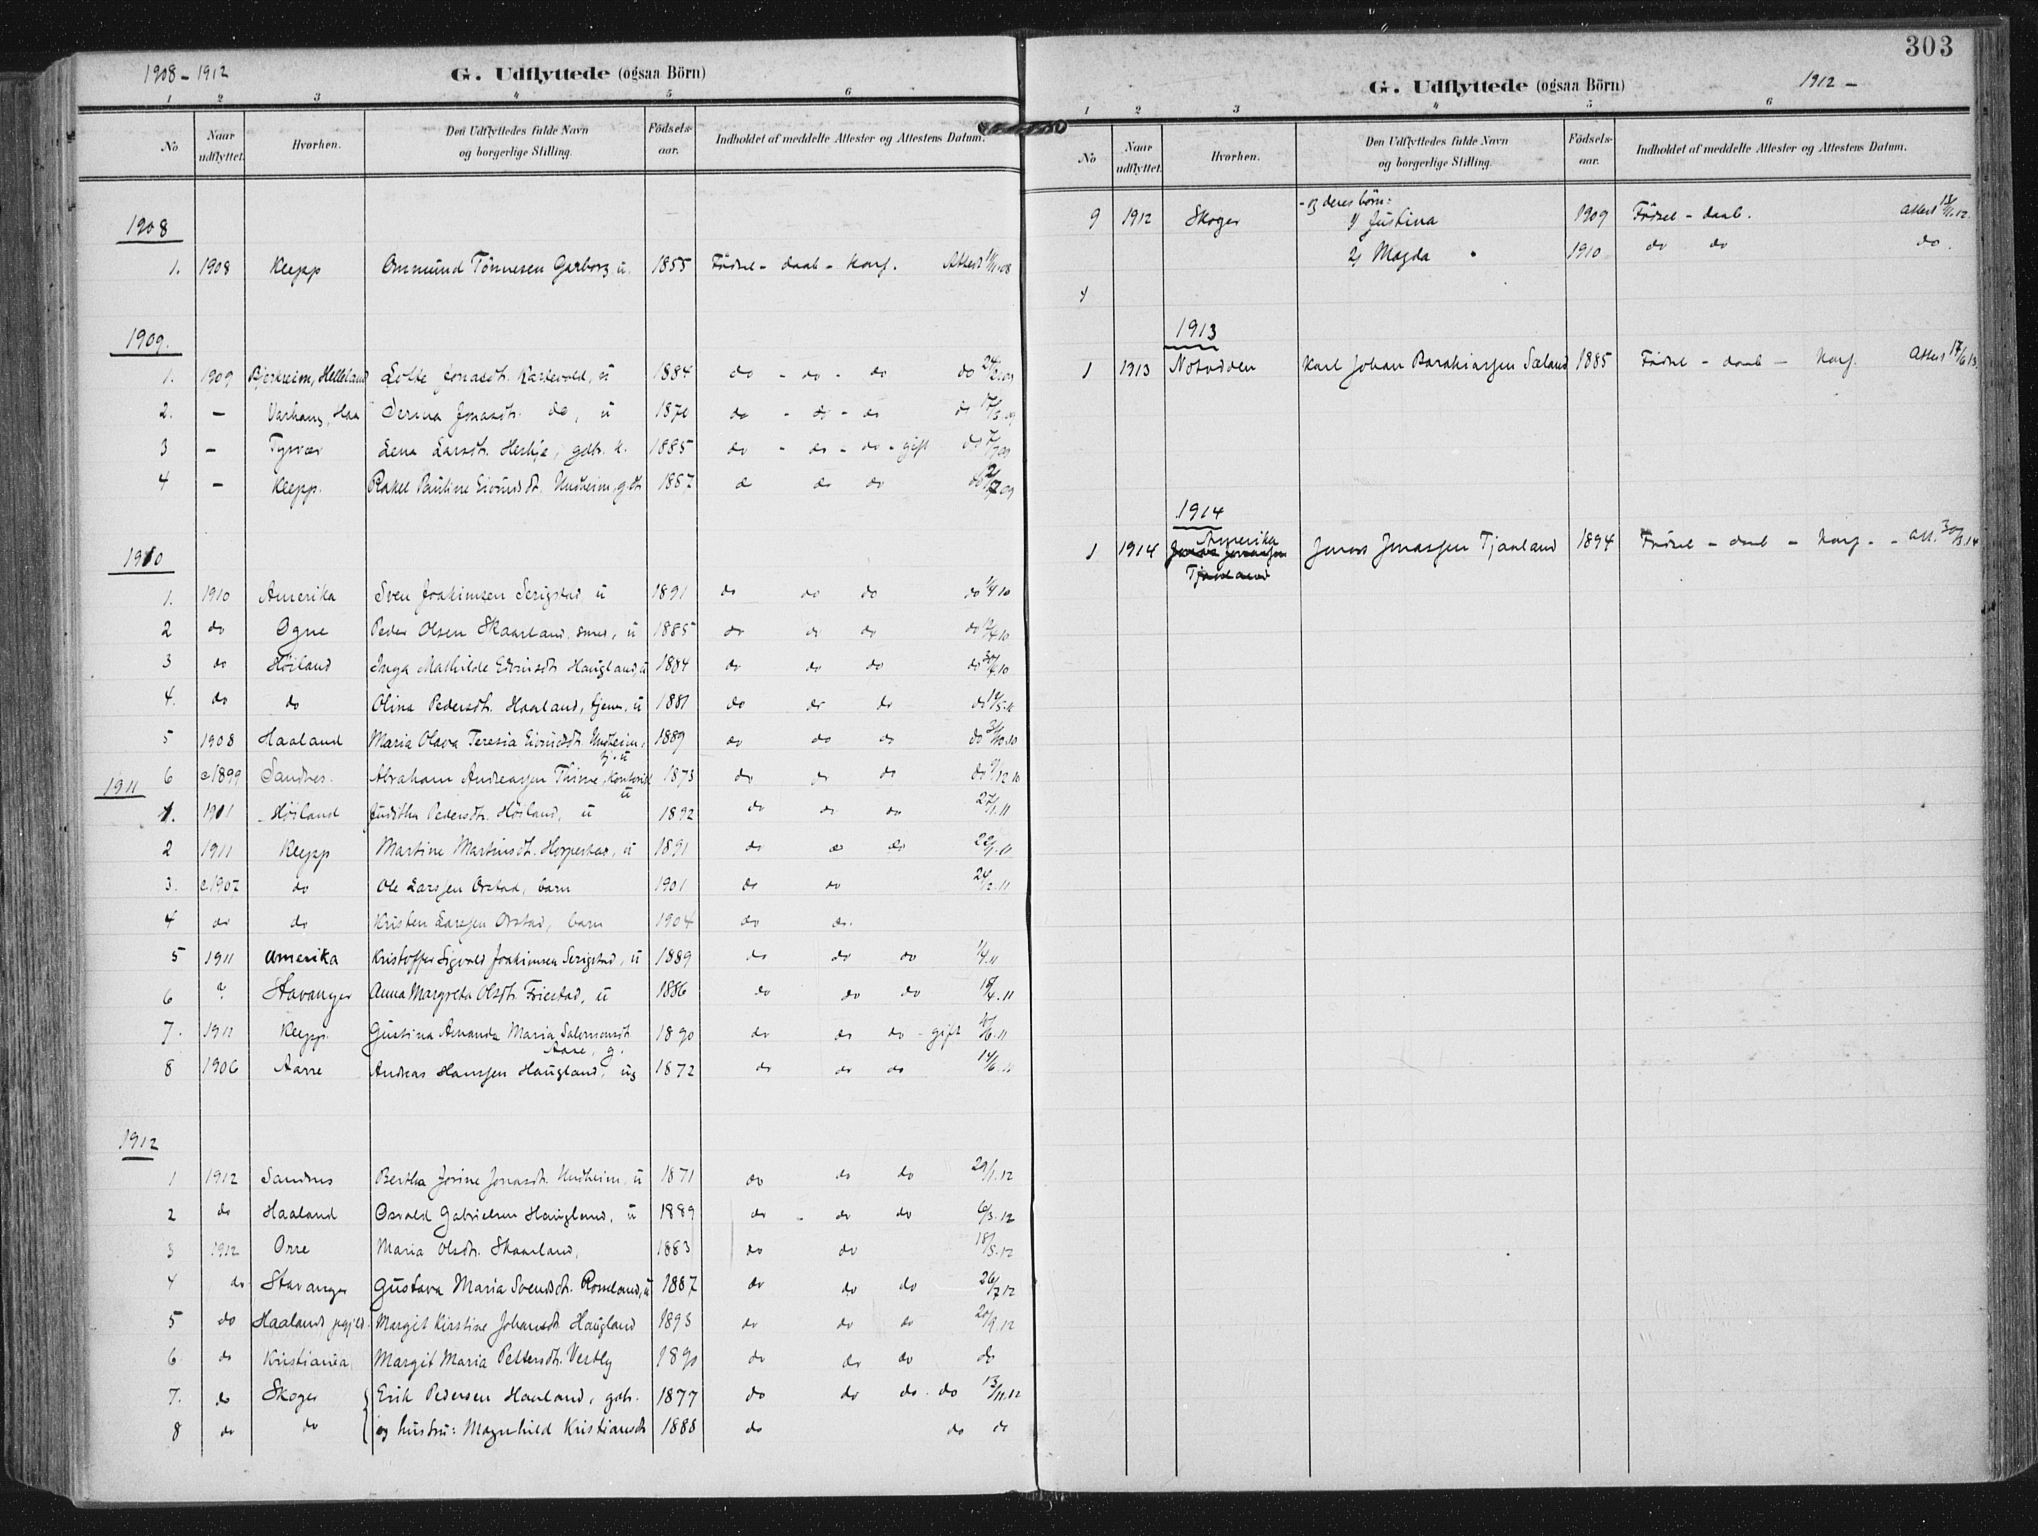 1908-1912
G. Udflyttede (ogsaa Börn)
1 2 3 4 5 6
No Naar udflyttet. Hvorhen. Den Udflyttedes fulde Navn og borgerlige Stilling. Födsels-aar. Indholdet af meddelte Attester og Attestens Datum.
1908
1. 1908 Klepp Ommund Tönnesen Garborg, ú. 1855 Födsel - daab - konf. Attest
1909.
1. 1909 Bjerkreim, Helleland Lotte Jonasdt. ú 1884 do - do - do do 24/2.09
2. - Varhaug, Haa Serina Jonasdt. do, ú 1870 do - do - do do
3 - Tysvær Lena Larsdt. gdbr. k. 1885 do - do - do - gift do
4 - Klepp. Rakel Pauline Eivindsdt. Undheim, g 1887 do do do
1910
1. 1910 Amerika Sven Joakimsen Serigstad, ú 1891 do do do do
2 do Ogne Peder Olsen Skaarland, smed, ú 1885 do do do do
3 do Höiland Inga Mathilde Haugland, ú 1884 do do do do
4. do do Olina Pedersdt. Haaland, tjen. ú 1881 do do do do
5 1908 Haaland Maria Olava Teresia Eivindsdt. Undheim, tj. ú 1889 do do do do 31/10.10
6 c1899 Sandnes. Abraham Andreassen Thime, ú 1873 do do do do
1911
1. 1911 Höiland Júditha Pedersdt. Höiland, ú 1892 do do do 27/1.11
2 1911 Klepp Martine Martinsdt. ú 1891 do do do
3. c.1907 do Ole Larssen Orstad, barn 1901 do do 24/2.11
4 do do Kristen Larssen Orstad, barn 1904 do do.
5 1911 Amerika Kristoffer Sigvald Joakimsen Serigstad, ú 1889 do do do 1/4.11
6 ? Stavanger Anna Margreta Olsdt. Friestad, ú 1886 do do do 18/4.11
7. 1911 Klepp. Gustina Amanda Maria Salomonsdt. Aase, g. 1890 do do do - gift
8 1906 Aarre Andreas Hanssen Haugland, ug 1872 do do do 14/6.11
1912
1 1912 Sandnes Bertha Jorine Jonasdt. Undheim, ú 1871 do do do 29/1.12
2 do Haaland Osvald Gabrielsen Haugland, ú 1889 do - do do 6/3.12
3 1912 Orre Maria Olsdt. Skaarland, 1883 do do 18/5.12
4 do Stavanger Gustava Maria Svendsdt. ú 1887 do do do 26/7.12
5 do Haaland Margit Kirstine Johansdt. Haugland 1893 do do do 20/9.12
6. do Kristiania Margit Maria Pettersdt. Vestly 1890 do do do do
7. do Skoger Erik Pedersen Haaland, gdb. 1877 do do do. do 13/11.12
8 do do og hustru: Magnhild Kristiansdt 1888 do do do
303
1912 -
G. Udflyttede (ogsaa Börn)
1 2 3 4 5 6
No Naar udflyttet. Hvorhen. Den Udflyttedes fulde Navn og borgerlige Stilling. Födsels-aar. Indholdet af meddelte Attester og Attestens Datum.
- og deres börn:
9 1912 Skoger 1) Justina 1909 Födsel - daab. Attest 13/11.12.
2) Magda 1910 do do do.
1913
1 1913 Notodden Karl Johan Barakiassen Sæland 1885 Födsel - daab - konf. Attest 17/6 13.
1914
Amerika
1 1914 Jonas Jonassen Jonas Jonassen Tjaaland 1894 Födsel - daab - konf. - Att.
Tjaaland